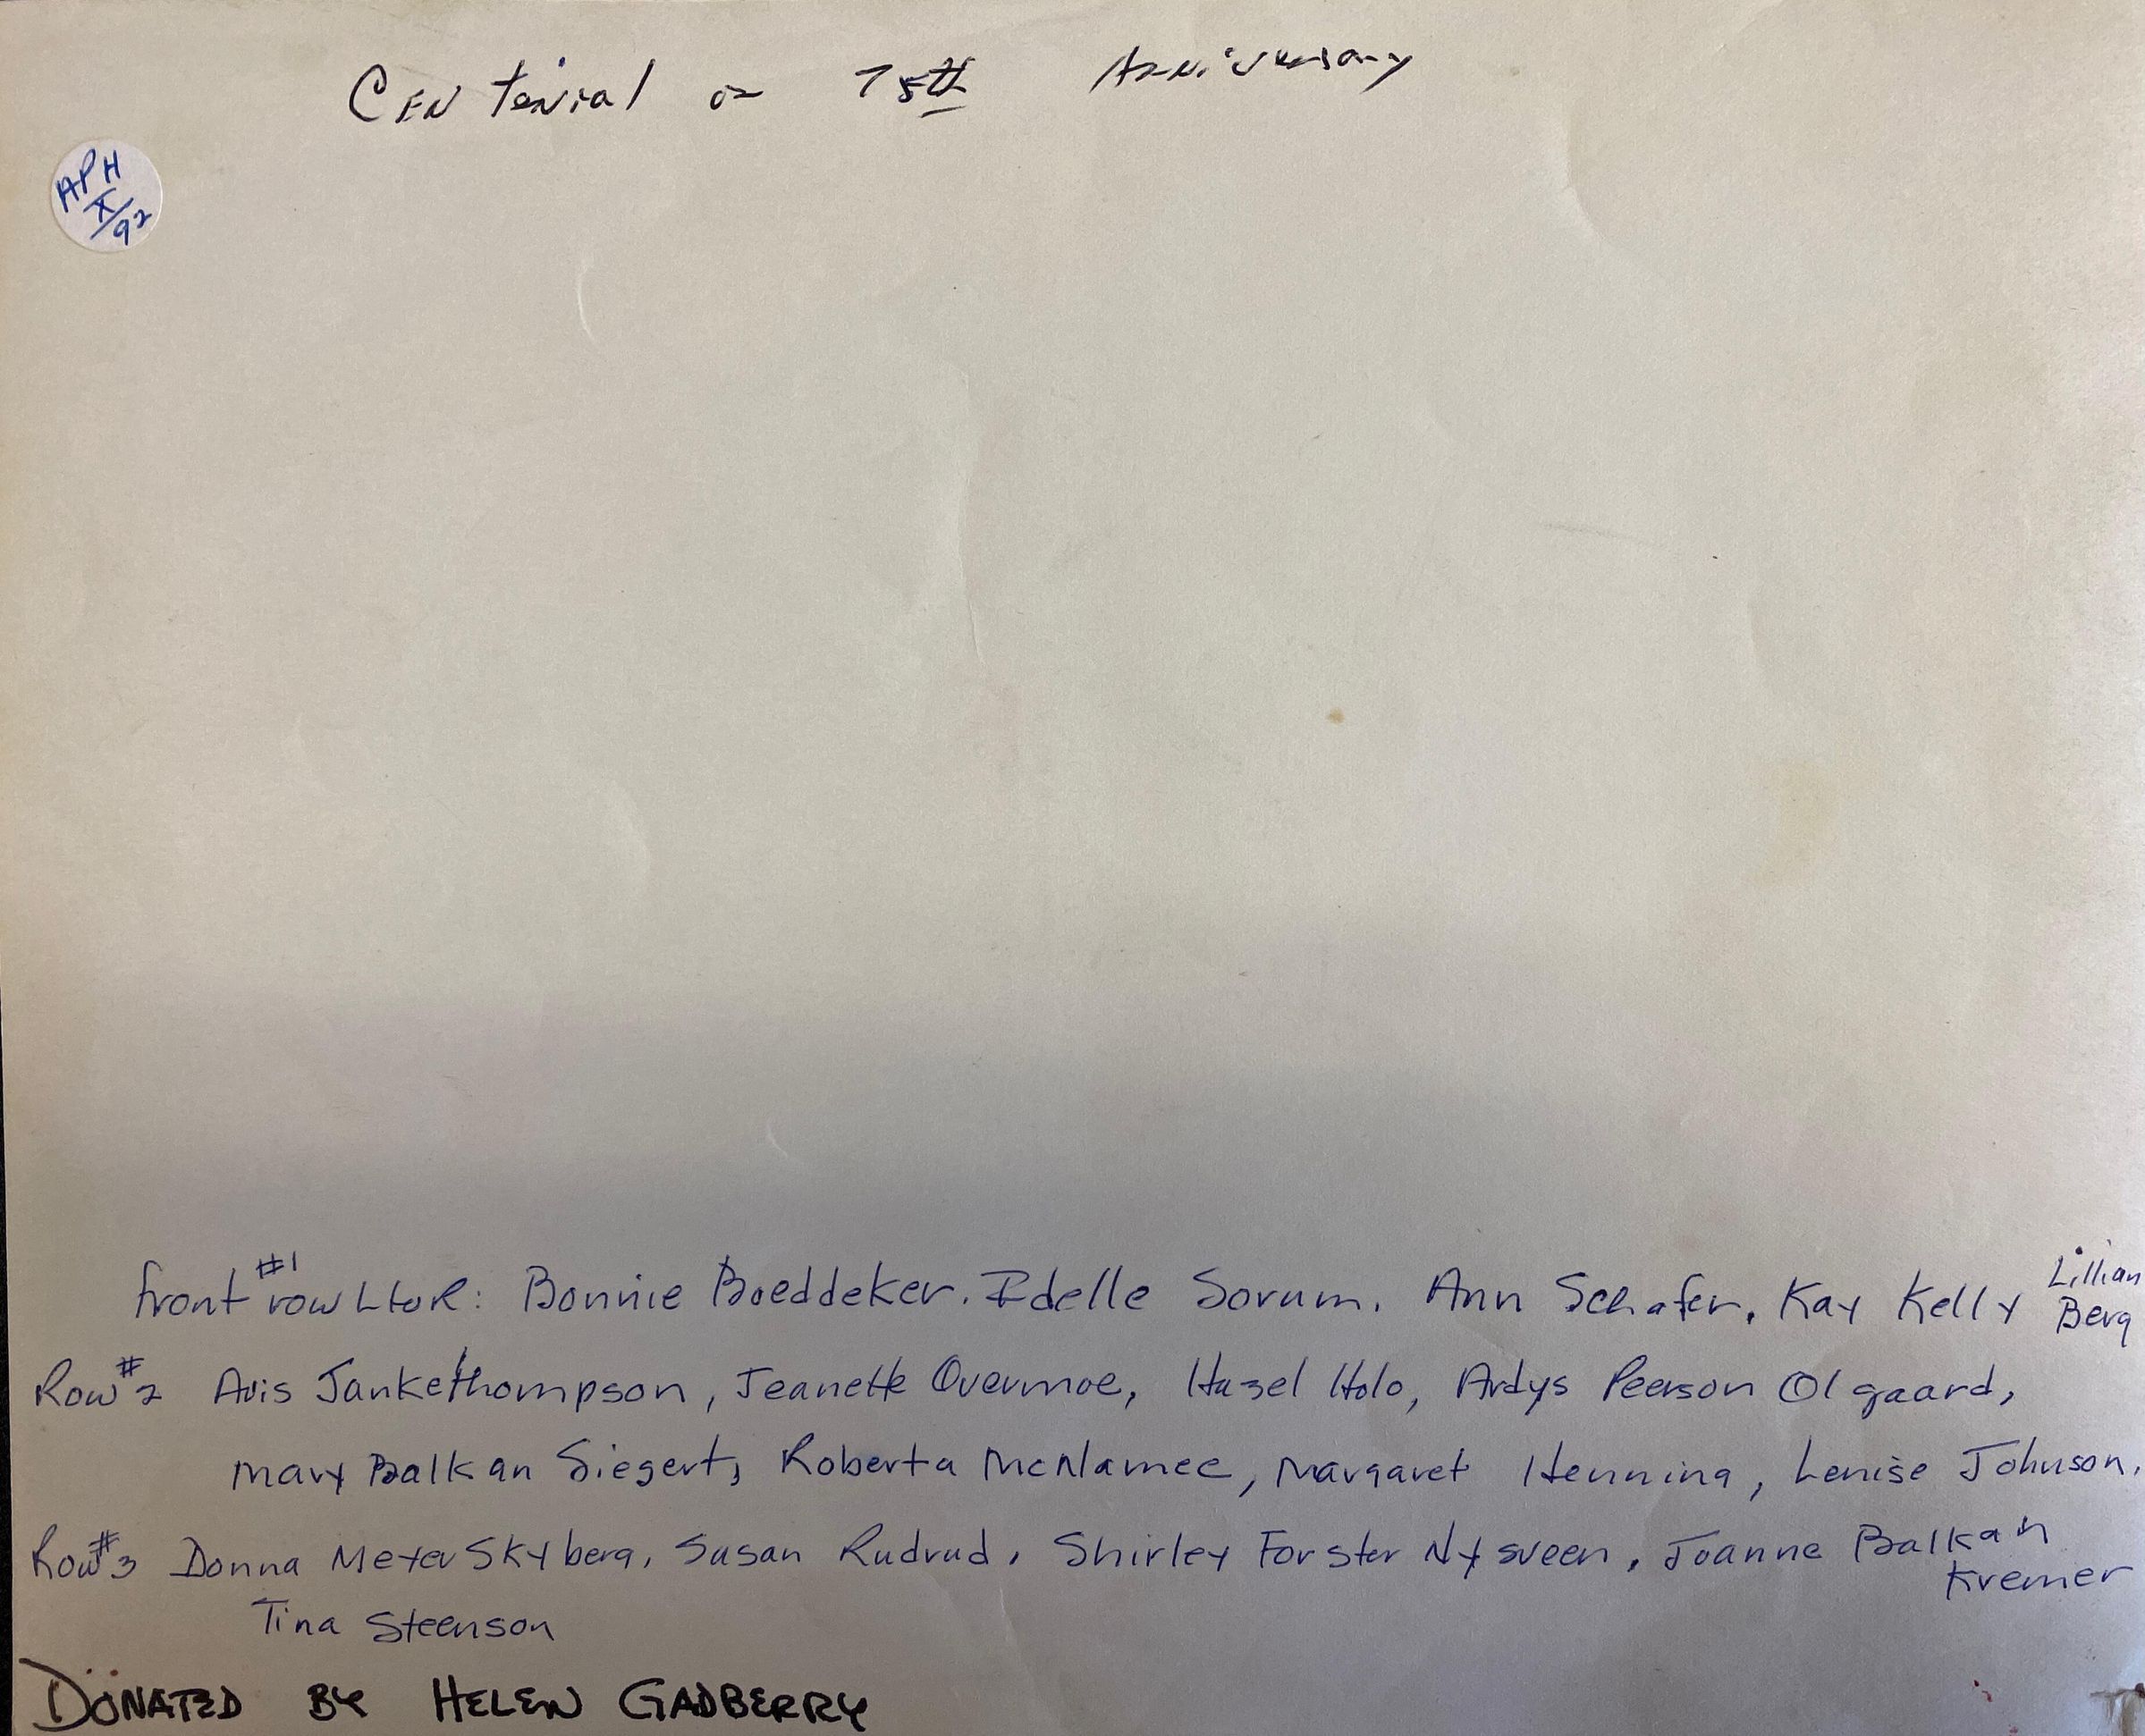 Centenial or 75th Anniversary
APH
X/92
front #1 row L to R: Bonnie Boeddeker. Idelle Sorum. Ann Schafer. Kay Kelly Lillian Berg
Row #2 Avis Jankethompson, Jeanette Overmoe, Hazel Holo, Ardys Peerson Olgaard,
Mary Balkan Siegert, Roberta McNamee, Margaret Henning, Lenise Johnson.
Row #3 Donna Meyer Skyberg, Susan Rudrud, Shirley Forster Nysveen, Joanne Balkan Kremer
Tina Steenson
DONATED BY HELEN GADBERRY